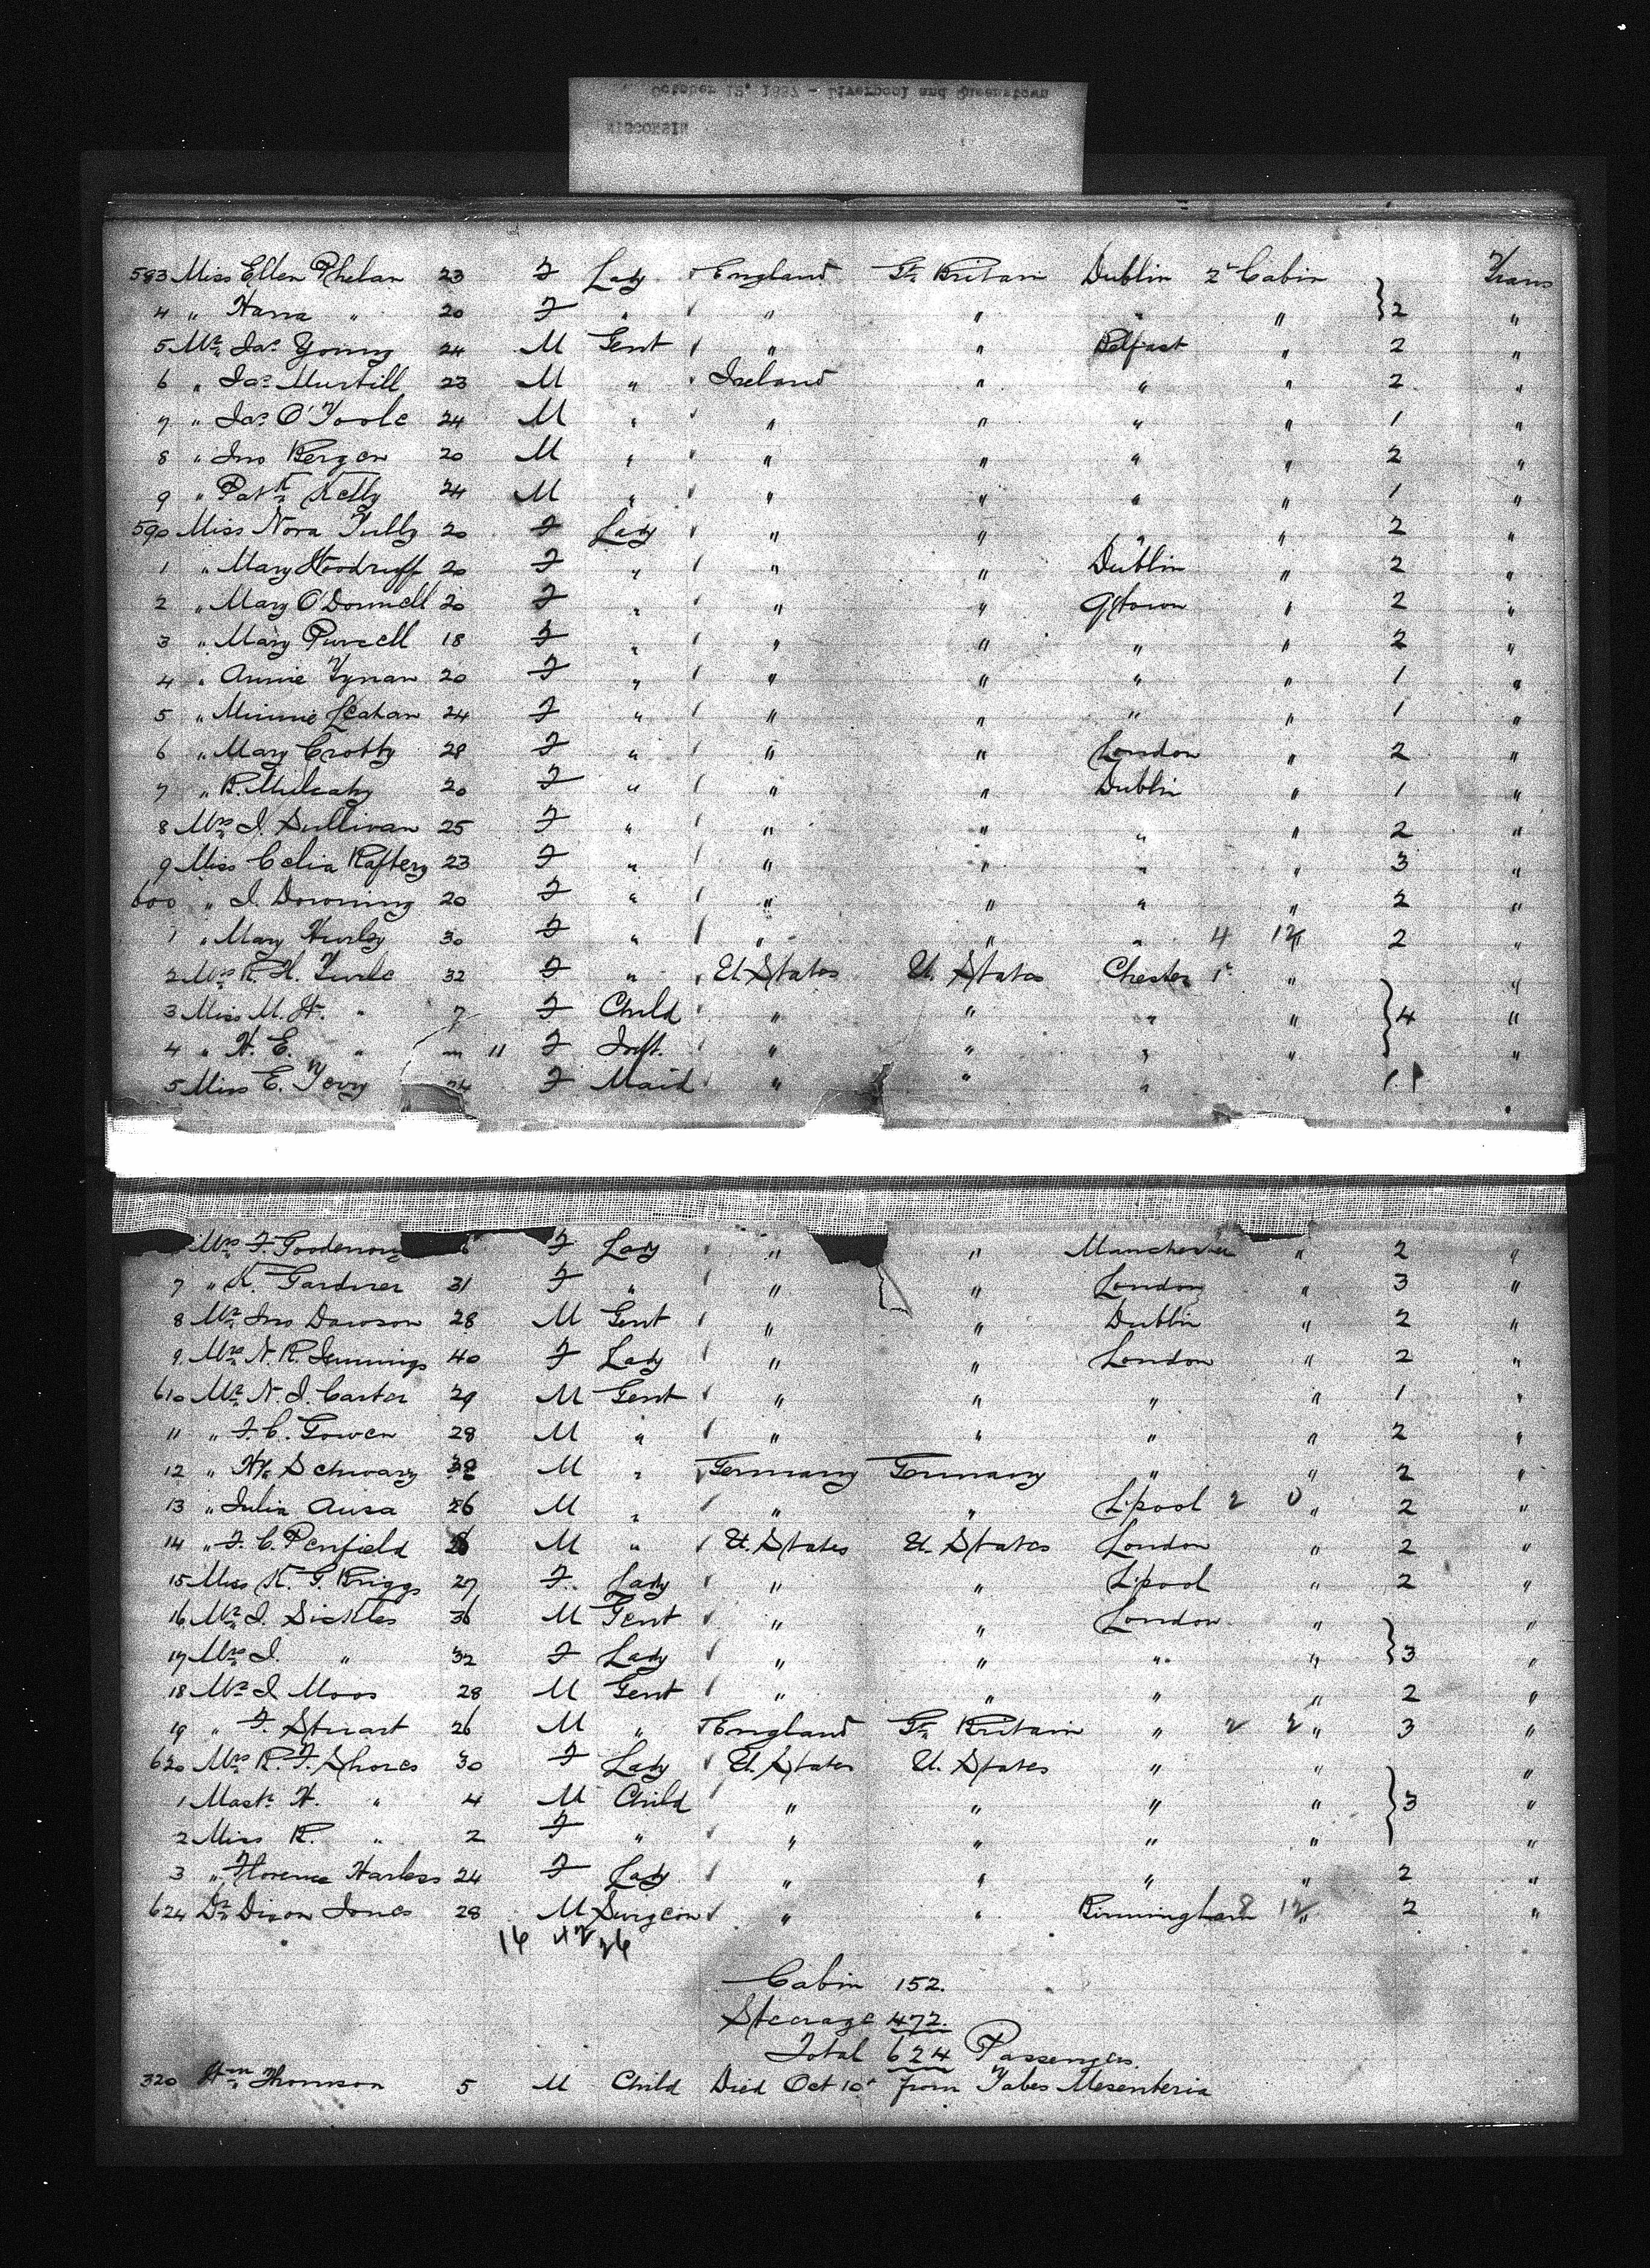 October 12, 1887 - Liverpool and Queenstown
WISCONSIN
583 Miss Ellen Phelan 23 F Lady England Gt. Britain Dublin 2d Cabin Trans
4 " Hana " 20 F " " " " " } 2 "
5 Mr. Jas. Young 24 M Gent " " Belfast " 2 "
6 " Jas. 23 M " Ireland " " " 2 "
7 " Jas. O'Toole 24 M " " " " " 1 "
8 " Jno Bergen 20 M " " " " " 2 "
9 " Patk. Kelly 24 M " " " " " 1 "
590 Miss Nora Tully 20 F Lady " " " " 2 "
1 " Mary Woodruff 20 F " " " Dublin " 2 "
2 " Mary O'Donnell 20 F " " " Q'town " 2 "
3 " Mary Purcell 18 F " " " " " 2 "
4 " Annie Tynan 20 F " " " " " 1 "
5 " Minnie Leahan 24 F " " " " " 1 "
6 " Mary Crotty 28 F " " " London " 2 "
7 " R. Mulcahy 20 F " " " Dublin " 1 "
8 Mrs. J. Sullivan 25 F " " " " " 2 "
9 Miss Celia Raftery 23 F " " " " " 3 "
600 " J. Downing 20 F " " " " " 2 "
1 " Mary Hurley 30 F " " " " 4 12 " 2 "
2 Mrs. R. H. 32 F " U. States U. States Chester 1st " "
3 Miss M. H. " 7 F Child " " " " } 4 "
4 " H. E. " m 11 F Inft. " " " " "
5 Miss E. Terry 24 F Maid " " " 1
Mrs. F. F Lady " " Manchester " 2 "
7 " K. Gardner 31 F " " " London " 3 "
8 Mr. Jno Dawson 28 M Gent " " Dublin " 2 "
9 Mrs. N. R. Jennings 40 F Lady " " London " 2 "
610 Mr. N. J. Carter 29 M Gent " " " " 1 "
11 " F. C. Gowen 28 M " " " " " 2 "
12 " Schwarz M " Germany Germany " " 2 "
13 " Julia Ausa 26 M " " " L'pool 2 0 " 2 "
14 " F. C. Penfield M " U. States U. States London " 2 "
15 Miss K. G. Briggs 27 F Lady " " L'pool " 2 "
16 Mr. J. Sickles 36 M Gent " " London " "
17 Mrs. J. " 32 F Lady " " " " } 3 "
18 Mr. J. Moos 28 M Gent " " " " 2 "
19 " F. Stuart 26 M " England Gt. Britain " 2 2 " 3 "
620 Mrs. R. F. Shores 30 F Lady U. States U. States " " "
1 Mastr. H. " 4 M Child " " " " } 3 "
2 Miss R. " 2 F " " " " " "
3 " Florence Harless 24 F Lady " " " " 2 "
624 Dr. Dixon Jones 28 M Surgeon " " Birmingham 8 12 " 2 "
16 12 26
Cabin 152.
Steerage 472.
Total 624 Passengers.
320 Wm. Thomson 5 M Child Died Oct 10th from Tabes Mesenteria